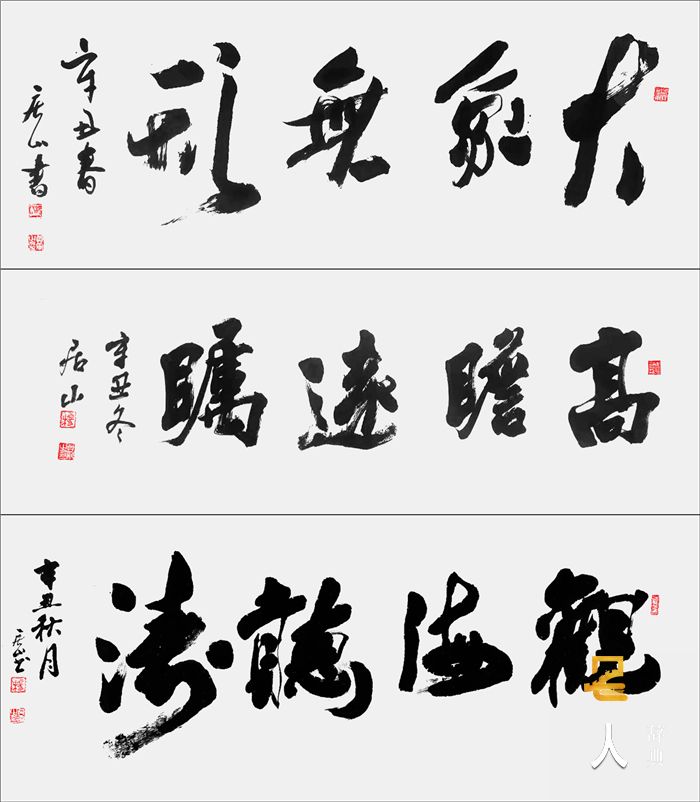 大象無形
辛丑春
居山書
高瞻遠矚
辛丑冬
居山
觀海聽濤
辛丑秋月
居山
名人
辞典